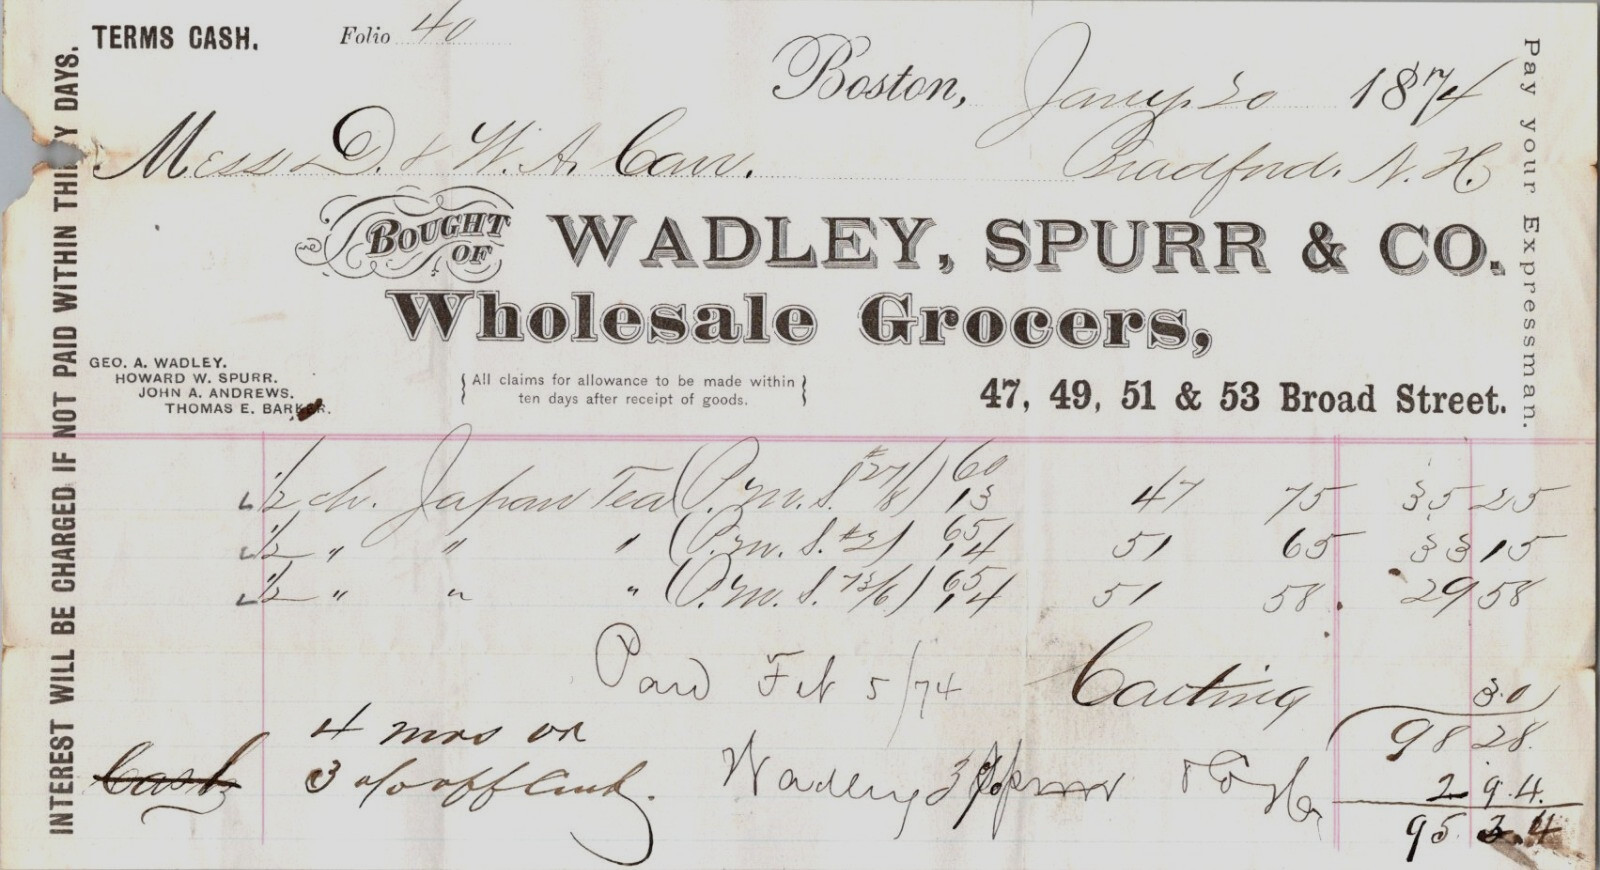 TERMS CASH. Folio 40
Boston, Jany. 20 1874
Mess D. & W. A. Carr. Bradford. N. H.
BOUGHT OF WADLEY, SPURR & CO.
Wholesale Grocers,
GEO. A. WADLEY.
HOWARD W. SPURR.
JOHN A. ANDREWS.
THOMAS E. BARKER.
All claims for allowance to be made within
ten days after receipt of goods.
47, 49, 51 & 53 Broad Street.
INTEREST WILL BE CHARGED IF NOT PAID WITHIN THIRTY DAYS.
Pay your Expressman.
1/2 ch. Japan Tea 60 13 47 75 35 25
1/2 " " " 65 14 51 65 33 15
1/2 " " " 65 14 51 58 29 58
Paid Feb 5/74 Carting 30
4 mos or 98 28
Cash 3 o/o off Cash. Wadley Spurr & Co 2 94
95 34